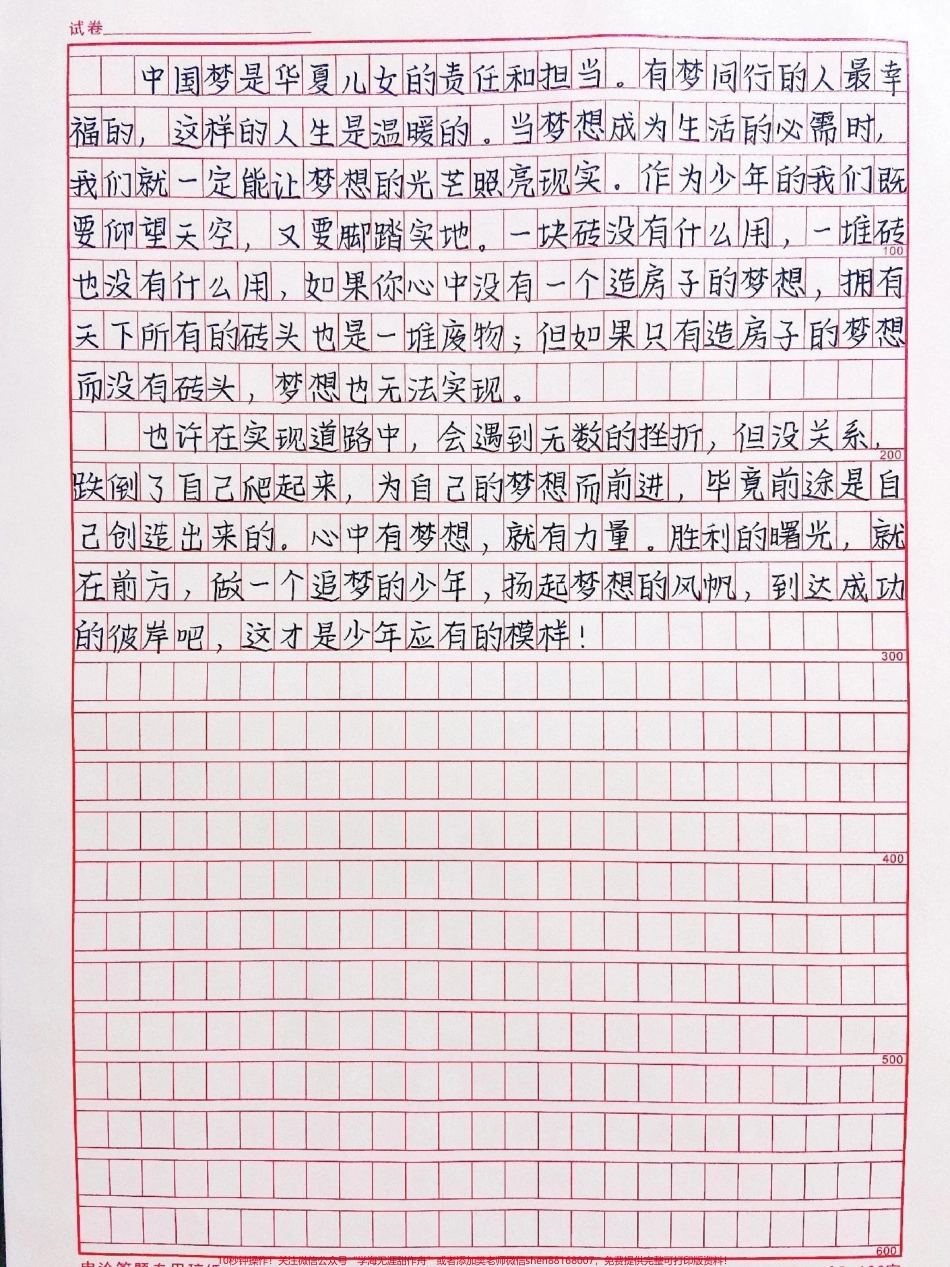 试卷
中国梦是华夏儿女的责任和担当。有梦同行的人最幸
福的，这样的人生是温暖的。当梦想成为生活的必需时，
我们就一定能让梦想的光芒照亮现实。作为少年的我们既
要仰望天空，又要脚踏实地。一块砖没有什么用，一堆砖
100
也没有什么用，如果你心中没有一个造房子的梦想，拥有
天下所有的砖头也是一堆废物；但如果只有造房子的梦想
而没有砖头，梦想也无法实现。
也许在实现道路中，会遇到无数的挫折，但没关系，
200
跌倒了自己爬起来，为自己的梦想而前进，毕竟前途是自
己创造出来的。心中有梦想，就有力量。胜利的曙光，就
在前方，做一个追梦的少年，扬起梦想的风帆，到达成功
的彼岸吧，这才是少年应有的模样！
300
400
500
600
10秒钟操作！关注微信公众号“学海无涯甜作舟”或者添加吴老师微信shen88168007，免费提供完整可打印版资料！